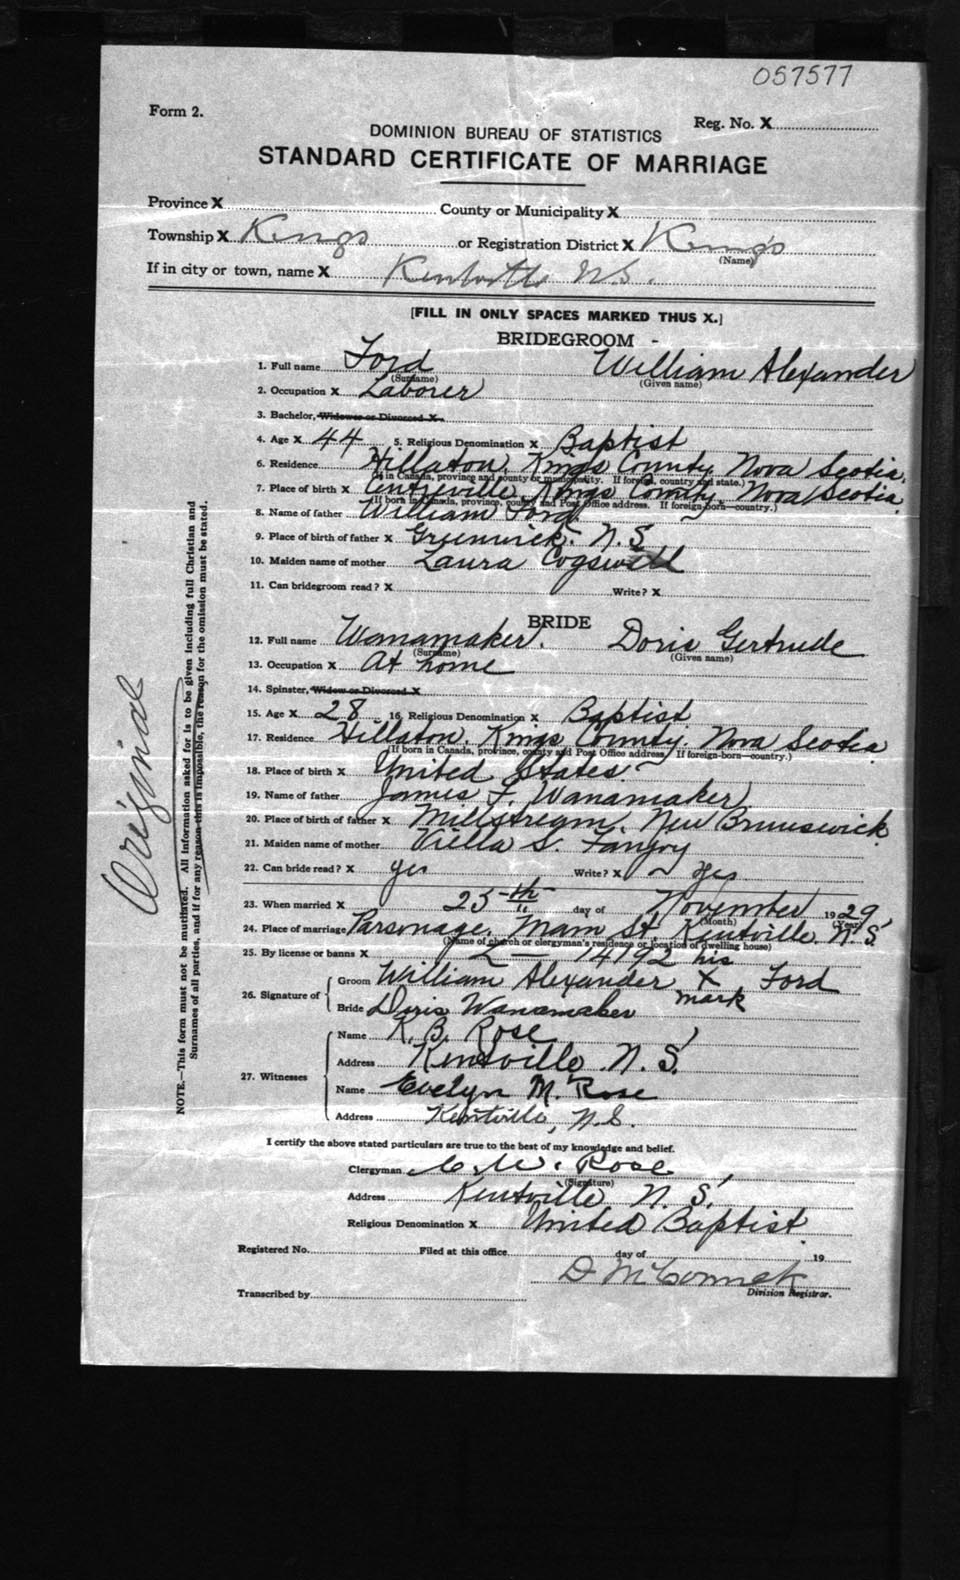 057577
Form 2.
Reg. No. X
DOMINION BUREAU OF STATISTICS
STANDARD CERTIFICATE OF MARRIAGE
Province X County or Municipality X
Township X Kings or Registration District X Kings
(Name)
If in city or town, name X Kentville N.S.
[FILL IN ONLY SPACES MARKED THUS X.]
BRIDEGROOM -
1. Full name Ford William Alexander
(Surname) (Given name)
2. Occupation X Laborer
3. Bachelor, Widower or Divorced X
4. Age X 44 5. Religious Denomination X Baptist
6. Residence Hillaton, Kings County, Nova Scotia.
(If in Canada, province and county or municipality. If foreign, country and state.)
7. Place of birth X Centreville, Kings County, Nova Scotia.
(If born in Canada, province, county and Post Office address. If foreign-born—country.)
8. Name of father William Ford.
9. Place of birth of father X Greenwick. N.S
10. Maiden name of mother Laura Cogswell
11. Can bridegroom read? X Write? X
BRIDE
12. Full name Wanamaker. Doris Gertrude
(Surname) (Given name)
13. Occupation X At home
14. Spinster, Widow or Divorced X
15. Age X 28 16. Religious Denomination X Baptist
17. Residence Hillaton. Kings County, Nova Scotia
(If born in Canada, province, county and Post Office address. If foreign-born—country.)
18. Place of birth X United States.
19. Name of father James F. Wanamaker
20. Place of birth of father X Millstream. New Brunswick.
21. Maiden name of mother S.
22. Can bride read? X yes Write? X yes
23. When married X 25th day of November 1929
(Month) (Year)
24. Place of marriage Parsonage, Main St. Kentville. N.S
(Name of church or clergyman's residence or location of dwelling house)
25. By license or banns X L — 14192 his
26. Signature of Groom William Alexander X Ford
mark
Bride Doris Wanamaker
27. Witnesses Name K. B. Rose
Address Kentville N.S.
Name Evelyn M. Rose
Address Kentville, N.S.
I certify the above stated particulars are true to the best of my knowledge and belief.
Clergyman C. W. Rose
(Signature)
Address Kentville N.S.
Religious Denomination X United Baptist.
Registered No. Filed at this office day of 19
D McCormick
Division Registrar.
Transcribed by
Original
NOTE.—This form must not be mutilated. All information asked for is to be given including full Christian and
Surnames of all parties, and if for any reason this is impossible, the reason for the omission must be stated.